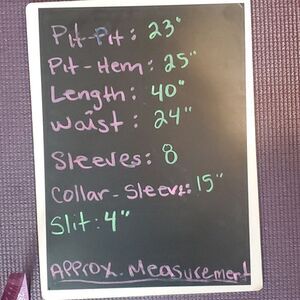 Pit-Pit: 23"
Pit-Hem: 25"
Length: 40"
Waist: 24"
Sleeves: 8
Collar-Sleeve: 15"
Slit: 4"
Approx. Measurement